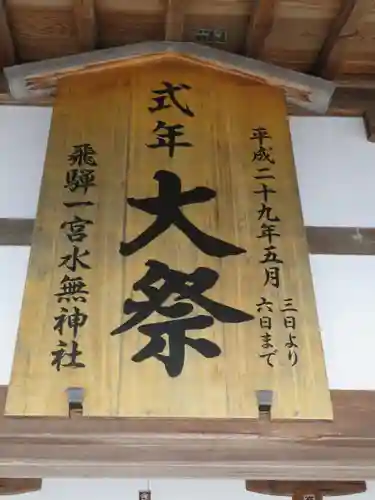 平成二十九年五月
三日より
六日まで
式年
大祭
飛騨一宮水無神社